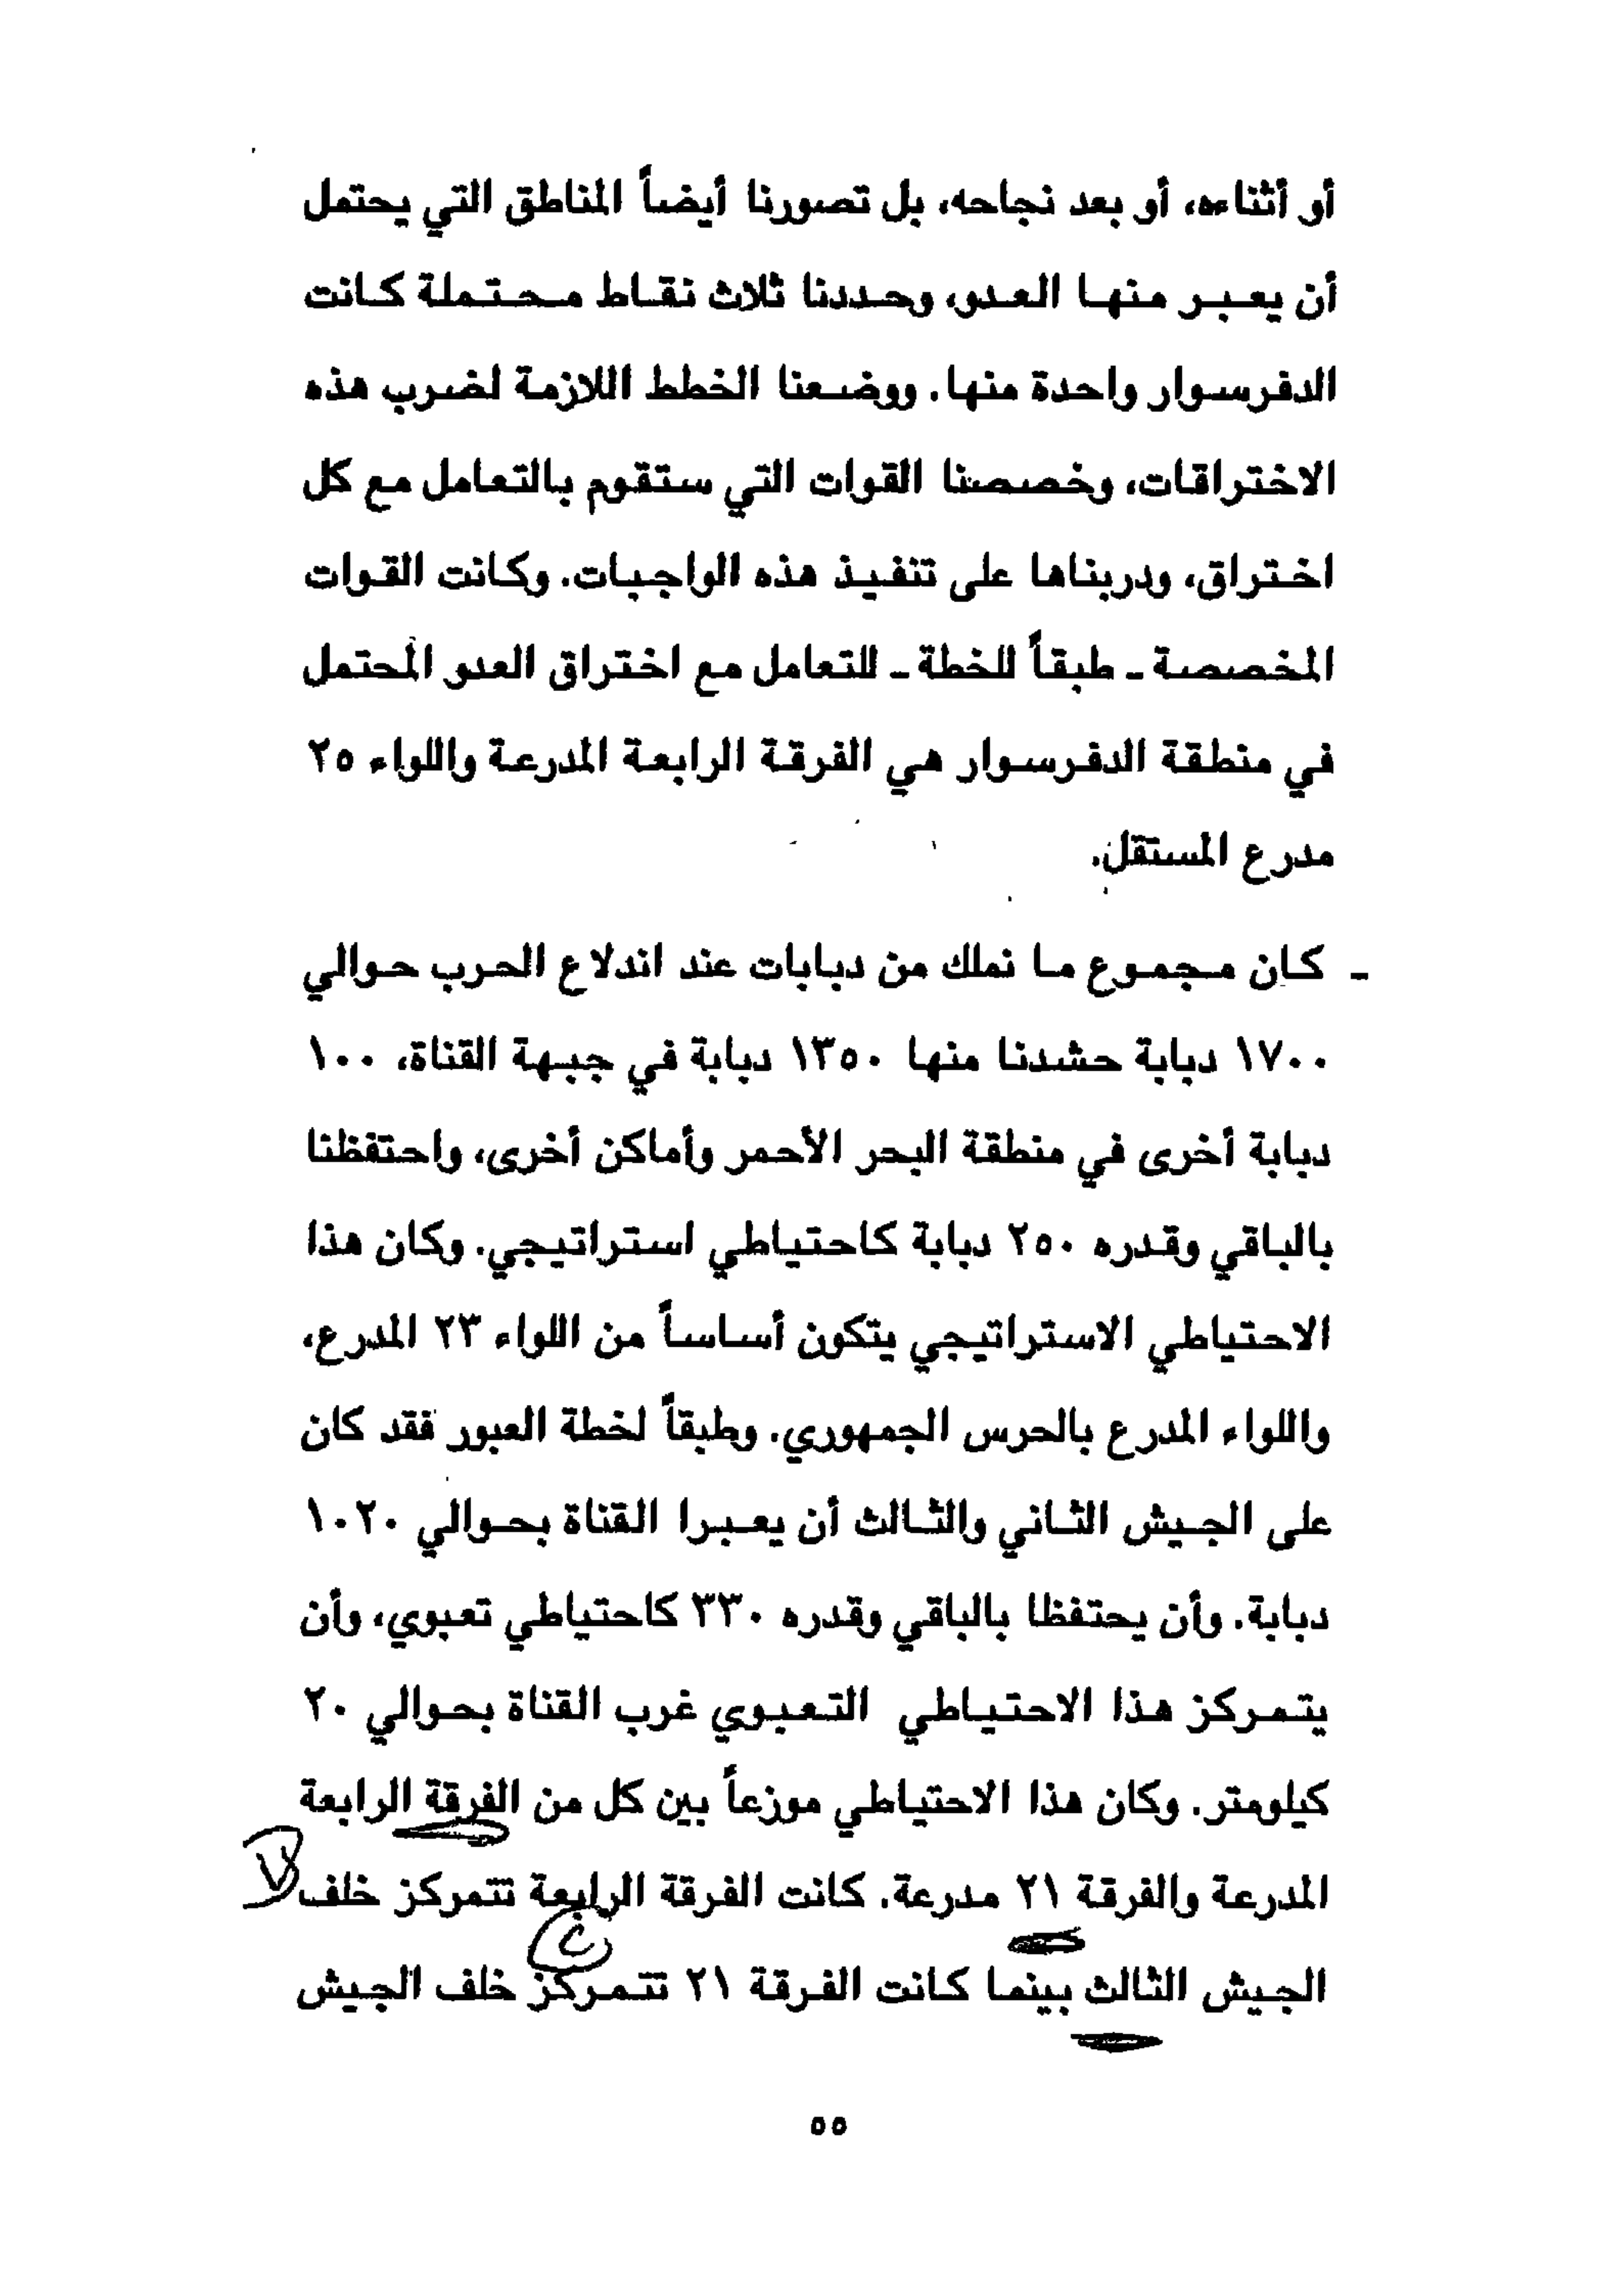 أو أثناءه، أو بعد نجاحه، بل تصورنا أيضاً المناطق التي يحتمل
أن يعبر منها العدو، وحددنا ثلاث نقاط محتملة كانت
الدفرسوار واحدة منها. ووضعنا الخطط اللازمة لضرب هذه
الاختراقات، وخصصنا القوات التي ستقوم بالتعامل مع كل
اختراق، ودربناها على تنفيذ هذه الواجبات. وكانت القوات
المخصصة ـ طبقاً للخطة ـ للتعامل مع اختراق العدو المحتمل
في منطقة الدفرسوار هي الفرقة الرابعة المدرعة واللواء ٢٥
مدرع المستقل.
ـ كان مجموع ما نملك من دبابات عند اندلاع الحرب حوالي
١٧٠٠ دبابة حشدنا منها ١٣٥٠ دبابة في جبهة القناة، ١٠٠
دبابة أخرى في منطقة البحر الأحمر وأماكن أخرى، واحتفظنا
بالباقي وقدره ٢٥٠ دبابة كاحتياطي استراتيجي. وكان هذا
الاحتياطي الاستراتيجي يتكون أساساً من اللواء ٢٣ المدرع،
واللواء المدرع بالحرس الجمهوري. وطبقاً لخطة العبور فقد كان
على الجيش الثاني والثالث أن يعبرا القناة بحوالي ١٠٢٠
دبابة. وأن يحتفظا بالباقي وقدره ٣٣٠ كاحتياطي تعبوي، وأن
يتمركز هذا الاحتياطي التعبوي غرب القناة بحوالي ٢٠
كيلومتر. وكان هذا الاحتياطي موزعاً بين كل من الفرقة الرابعة
المدرعة والفرقة ٢١ مدرعة. كانت الفرقة الرابعة تتمركز خلف
الجيش الثالث بينما كانت الفرقة ٢١ تتمركز خلف الجيش
٥٥